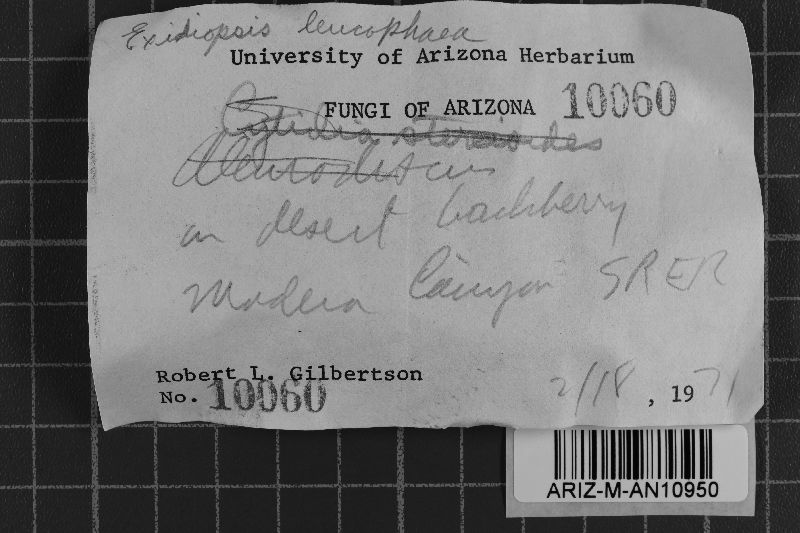 Exidiopsis leucophaea
University of Arizona Herbarium
FUNGI OF ARIZONA 10060
Cytidia stereoides
Aleurodiscus
on desert hackberry
Madera Canyon SRER
Robert L. Gilbertson
No. 10060
2/18, 1971
ARIZ-M-AN10950